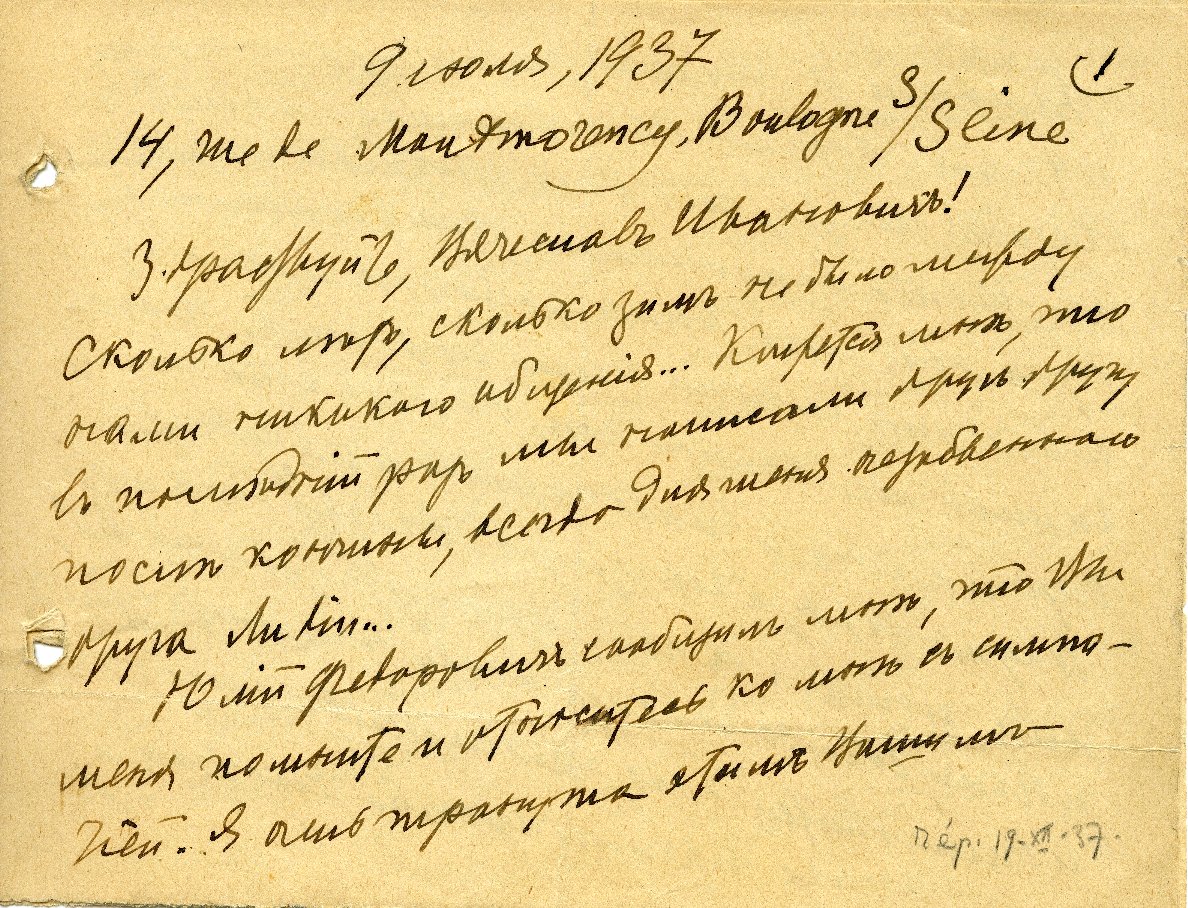 9 июля, 1937
1
14, rue de Montmorency, Boulogne s/Seine
Здравствуйте, Вячеславъ Ивановичъ!
Сколько лѣтъ, сколько зимъ не было между
нами никакого общенія... Кажется мнѣ, что
въ послѣдній разъ мы написали другъ другу
послѣ кончины, всегда для меня незабвеннаго
друга Лидіи...
Юлій Федоровичъ сообщилъ мнѣ, что Вы
меня помните и относитесь ко мнѣ съ симпа-
тіей. Я очень тронута этимъ Вашимъ
19.XII.37.